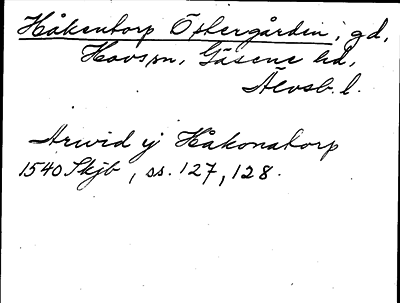 Håkentorp Östergården, gd,
Hovs sn, Gäsene hd,
Älvsb. l.
Arwid ij Håkonatorp
1540 Skjb, ss. 127, 128.